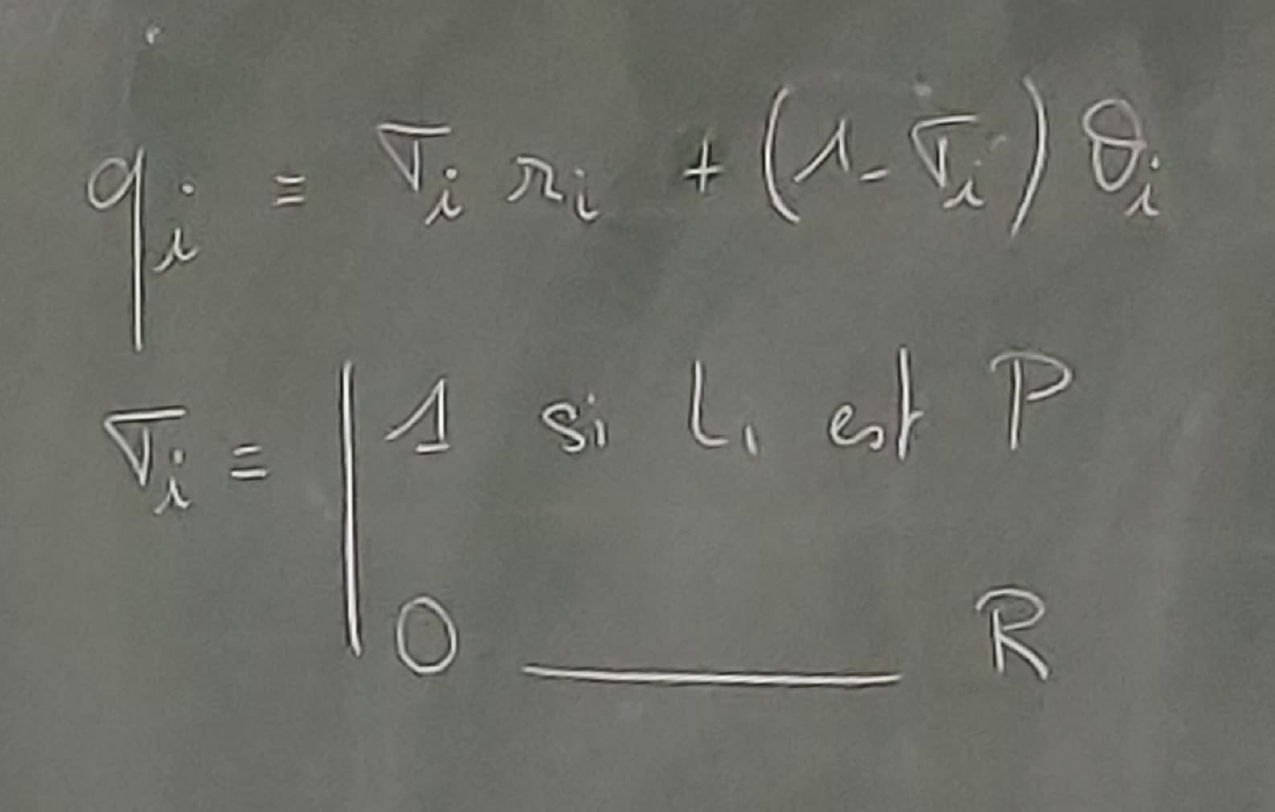 q_i = σ_i r_i + (1 - σ_i) θ_i
σ_i = | 1 si L_i est P
0 ——— R